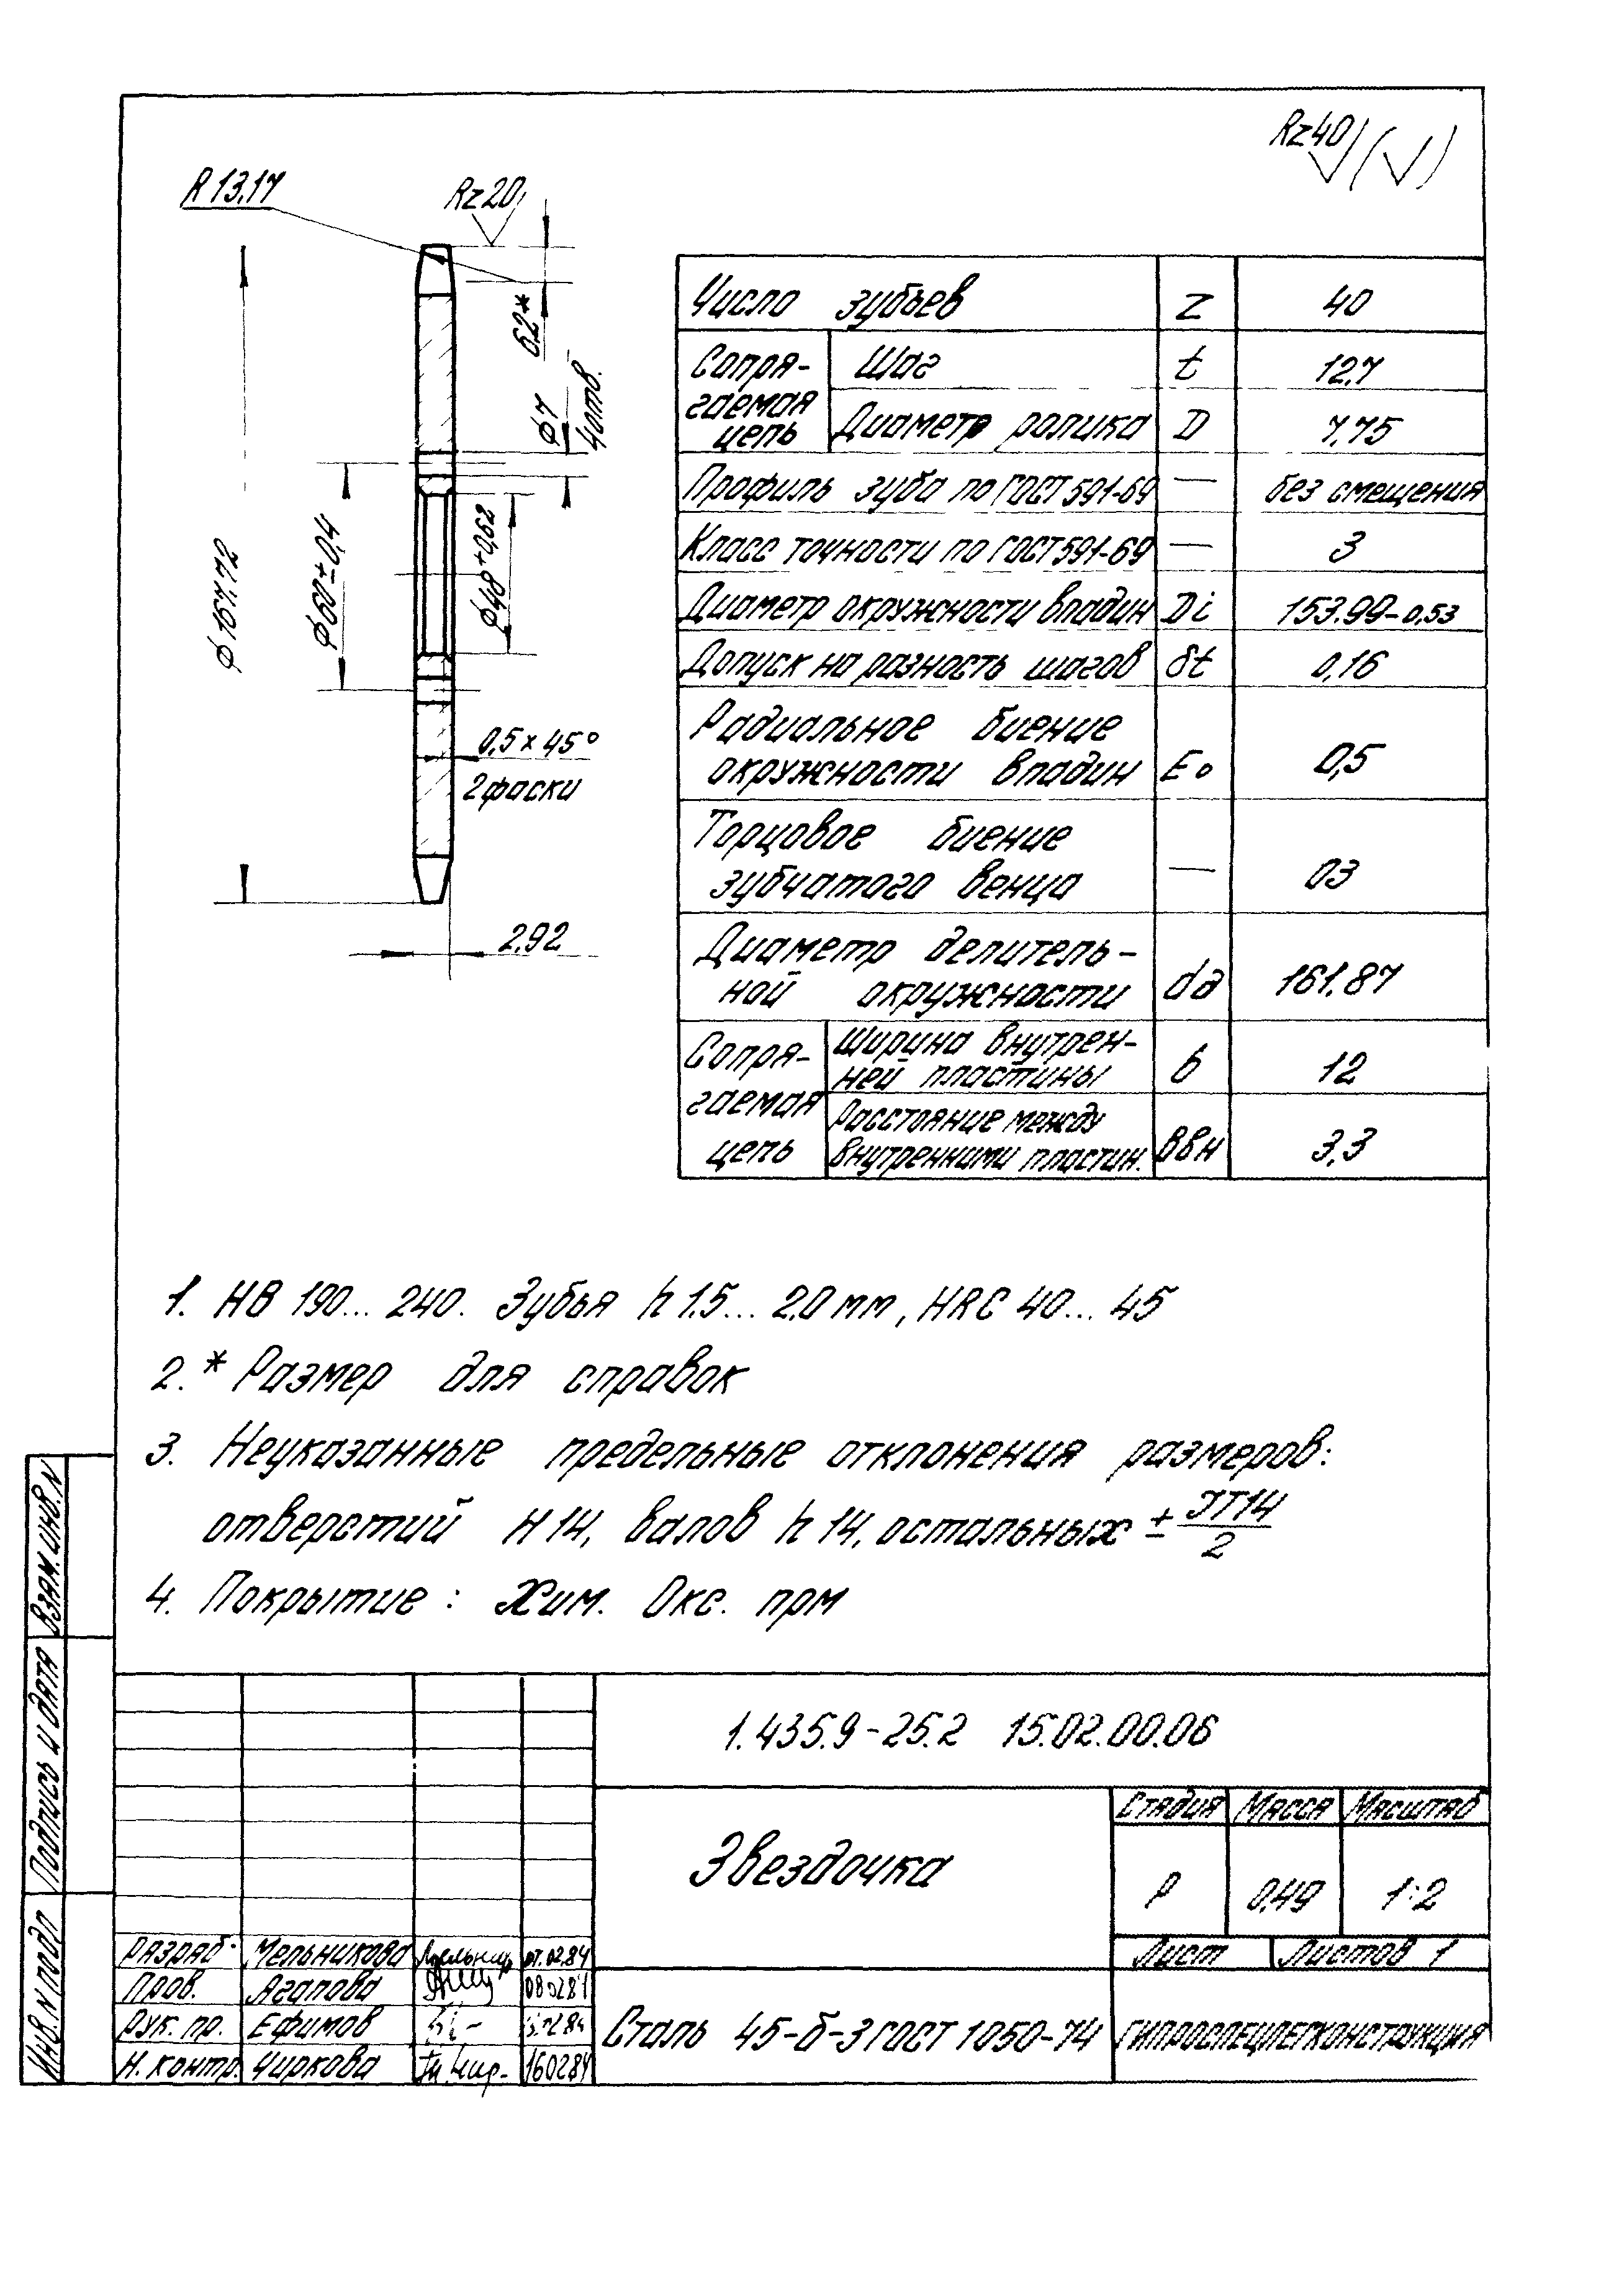 Rz40 (√)
R 13,17
Rz20
6,2*
φ7
4отв.
φ167,72
φ60±0,4
φ48+0,62
0,5×45°
2 фаски
2,92
Число зубьев Z 40
Сопря-
гаемая
цепь
Шаг t 12,7
Диаметр ролика D 7,75
Профиль зуба по ГОСТ 591-69 — без смещения
Класс точности по ГОСТ 591-69 — 3
Диаметр окружности впадин Di 153.99-0,53
Допуск на разность шагов δt 0,16
Радиальное биение
окружности впадин Eo 0,5
Торцовое биение
зубчатого венца — 03
Диаметр делитель-
ной окружности dд 161,87
Сопря-
гаемая
цепь
Ширина внутрен-
ней пластины b 12
Расстояние между
внутренними пластин. Ввн 3,3
1. HB 190... 240. Зубья h 1,5... 2,0 мм, HRC 40... 45
2.* Размер для справок
3. Неуказанные предельные отклонения размеров:
отверстий H14, валов h14, остальных ± IT14/2
4. Покрытие: Хим. Окс. прм
Взам. инв. N
Подпись и дата
Инв. N подл
1.435.9-25.2 15.02.00.06
Звездочка
Стадия Масса Масштаб
Р 0,49 1:2
Лист Листов 1
Разраб. Мельникова 07.02.84
Пров. Агапова 080284
Рук. пр. Ефимов
Н. контр. Чиркова 160284
Сталь 45-б-3 ГОСТ 1050-74
ГИПРОСПЕЦЛЕГКОНСТРУКЦИЯ